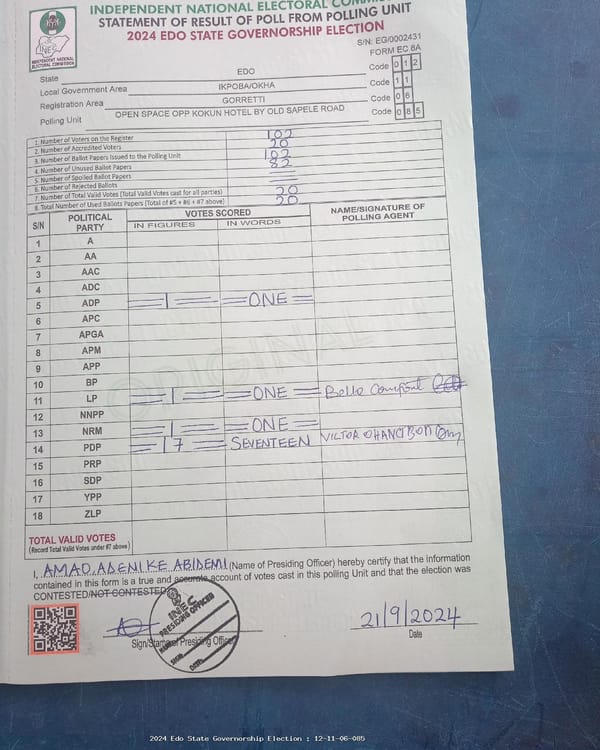 INDEPENDENT NATIONAL ELECTORAL
STATEMENT OF RESULT OF POLL FROM POLLING UNIT
2024 EDO STATE GOVERNORSHIP ELECTION
INEC
INDEPENDENT NATIONAL
ELECTORAL COMMISSION
S/N: EG/0002431
FORM EC 8A
State EDO Code 0 1 2
Local Government Area IKPOBA/OKHA Code 1 1
Registration Area GORRETTI Code 0 6
Polling Unit OPEN SPACE OPP KOKUN HOTEL BY OLD SAPELE ROAD Code 0 8 5
1. Number of Voters on the Register 102
2. Number of Accredited Voters 20
3. Number of Ballot Papers Issued to the Polling Unit 102
4. Number of Unused Ballot Papers 82
5. Number of Spoiled Ballot Papers
6. Number of Rejected Ballots
7. Number of Total Valid Votes (Total Valid Votes cast for all parties) 20
8. Total Number of Used Ballots Papers (Total of #5 + #6 + #7 above) 20
S/N POLITICAL PARTY VOTES SCORED NAME/SIGNATURE OF POLLING AGENT
IN FIGURES IN WORDS
1 A
2 AA
3 AAC
4 ADC
5 ADP 1 ONE
6 APC
7 APGA
8 APM
9 APP
10 BP
11 LP 1 ONE Bello Comfort
12 NNPP
13 NRM 1 ONE
14 PDP 17 SEVENTEEN VICTOR
15 PRP
16 SDP
17 YPP
18 ZLP
ORIGINAL
TOTAL VALID VOTES
(Record Total Valid Votes under #7 above)
I, AMAO, ADENIKE ABIDEMI (Name of Presiding Officer) hereby certify that the information
contained in this form is a true and accurate account of votes cast in this polling Unit and that the election was
CONTESTED/NOT CONTESTED
INEC
PRESIDING OFFICER
NAME
SIGN
DATE
21/9/2024
Sign/Stamp of Presiding Officer
Date
2024 Edo State Governorship Election : 12-11-06-085